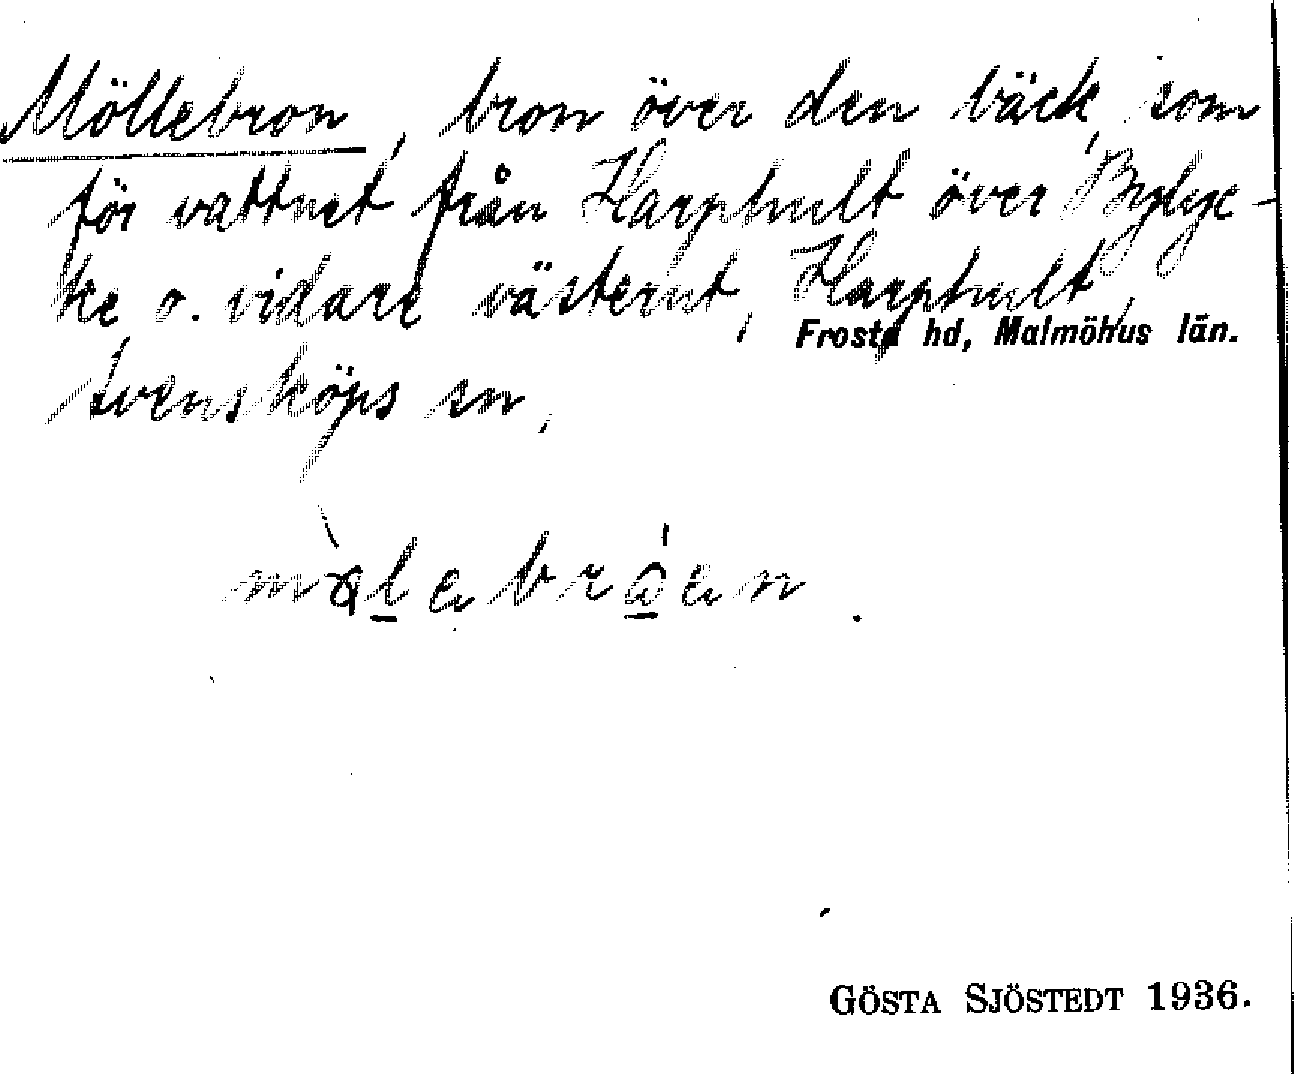 Möllebron, bron över den bäck, som
för vattnet från Harphult över Bylyc-
ke o. vidare västerut, Harphult,
Frosta hd, Malmöhus län.
Svensköps sn,
GÖSTA SJÖSTEDT 1936.